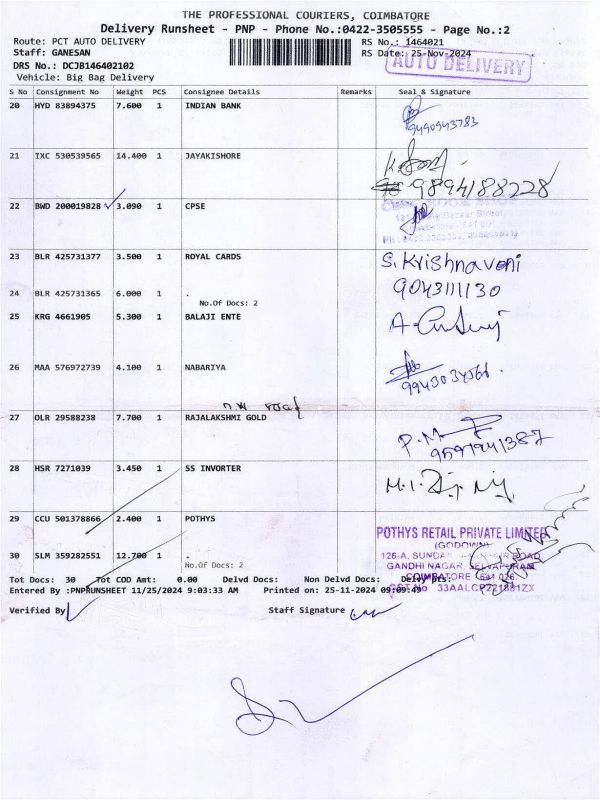 THE PROFESSIONAL COURIERS, COIMBATORE
Delivery Runsheet - PNP - Phone No.:0422-3505555 - Page No.:2
Route: PCT AUTO DELIVERY RS No.: 1464021
Staff: GANESAN RS Date: 25-Nov-2024
AUTO DELIVERY
DRS No.: DCJB146402102
Vehicle: Big Bag Delivery
S No Consignment No Weight PCS Consignee Details Remarks Seal & Signature
20 HYD 83894375 7.600 1 INDIAN BANK
9490943783
21 IXC 530539565 14.400 1 JAYAKISHORE
9894188228
22 BWD 200019828 3.090 1 CPSE
23 BLR 425731377 3.500 1 ROYAL CARDS S. Krishnaveni
9043111130
24 BLR 425731365 6.000 1 .
No.Of Docs: 2
25 KRG 4661905 5.300 1 BALAJI ENTE
26 MAA 576972739 4.100 1 NABARIYA
27 OLR 29588238 7.700 1 RAJALAKSHMI GOLD P.M
28 HSR 7271039 3.450 1 SS INVORTER
29 CCU 501378866 2.400 1 POTHYS
POTHYS RETAIL PRIVATE LIMITED
(GODOWN)
30 SLM 359282551 12.700 1 . 126-A, ROAD
No.Of Docs: 2 GANDHI NAGAR, SELVAPURAM
COIMBATORE - 641 026
Tot Docs: 30 Tot COD Amt: 0.00 Delvd Docs: Non Delvd Docs:
Entered By :PNPRUNSHEET 11/25/2024 9:03:33 AM Printed on: 25-11-2024 09:09:49
Verified By Staff Signature